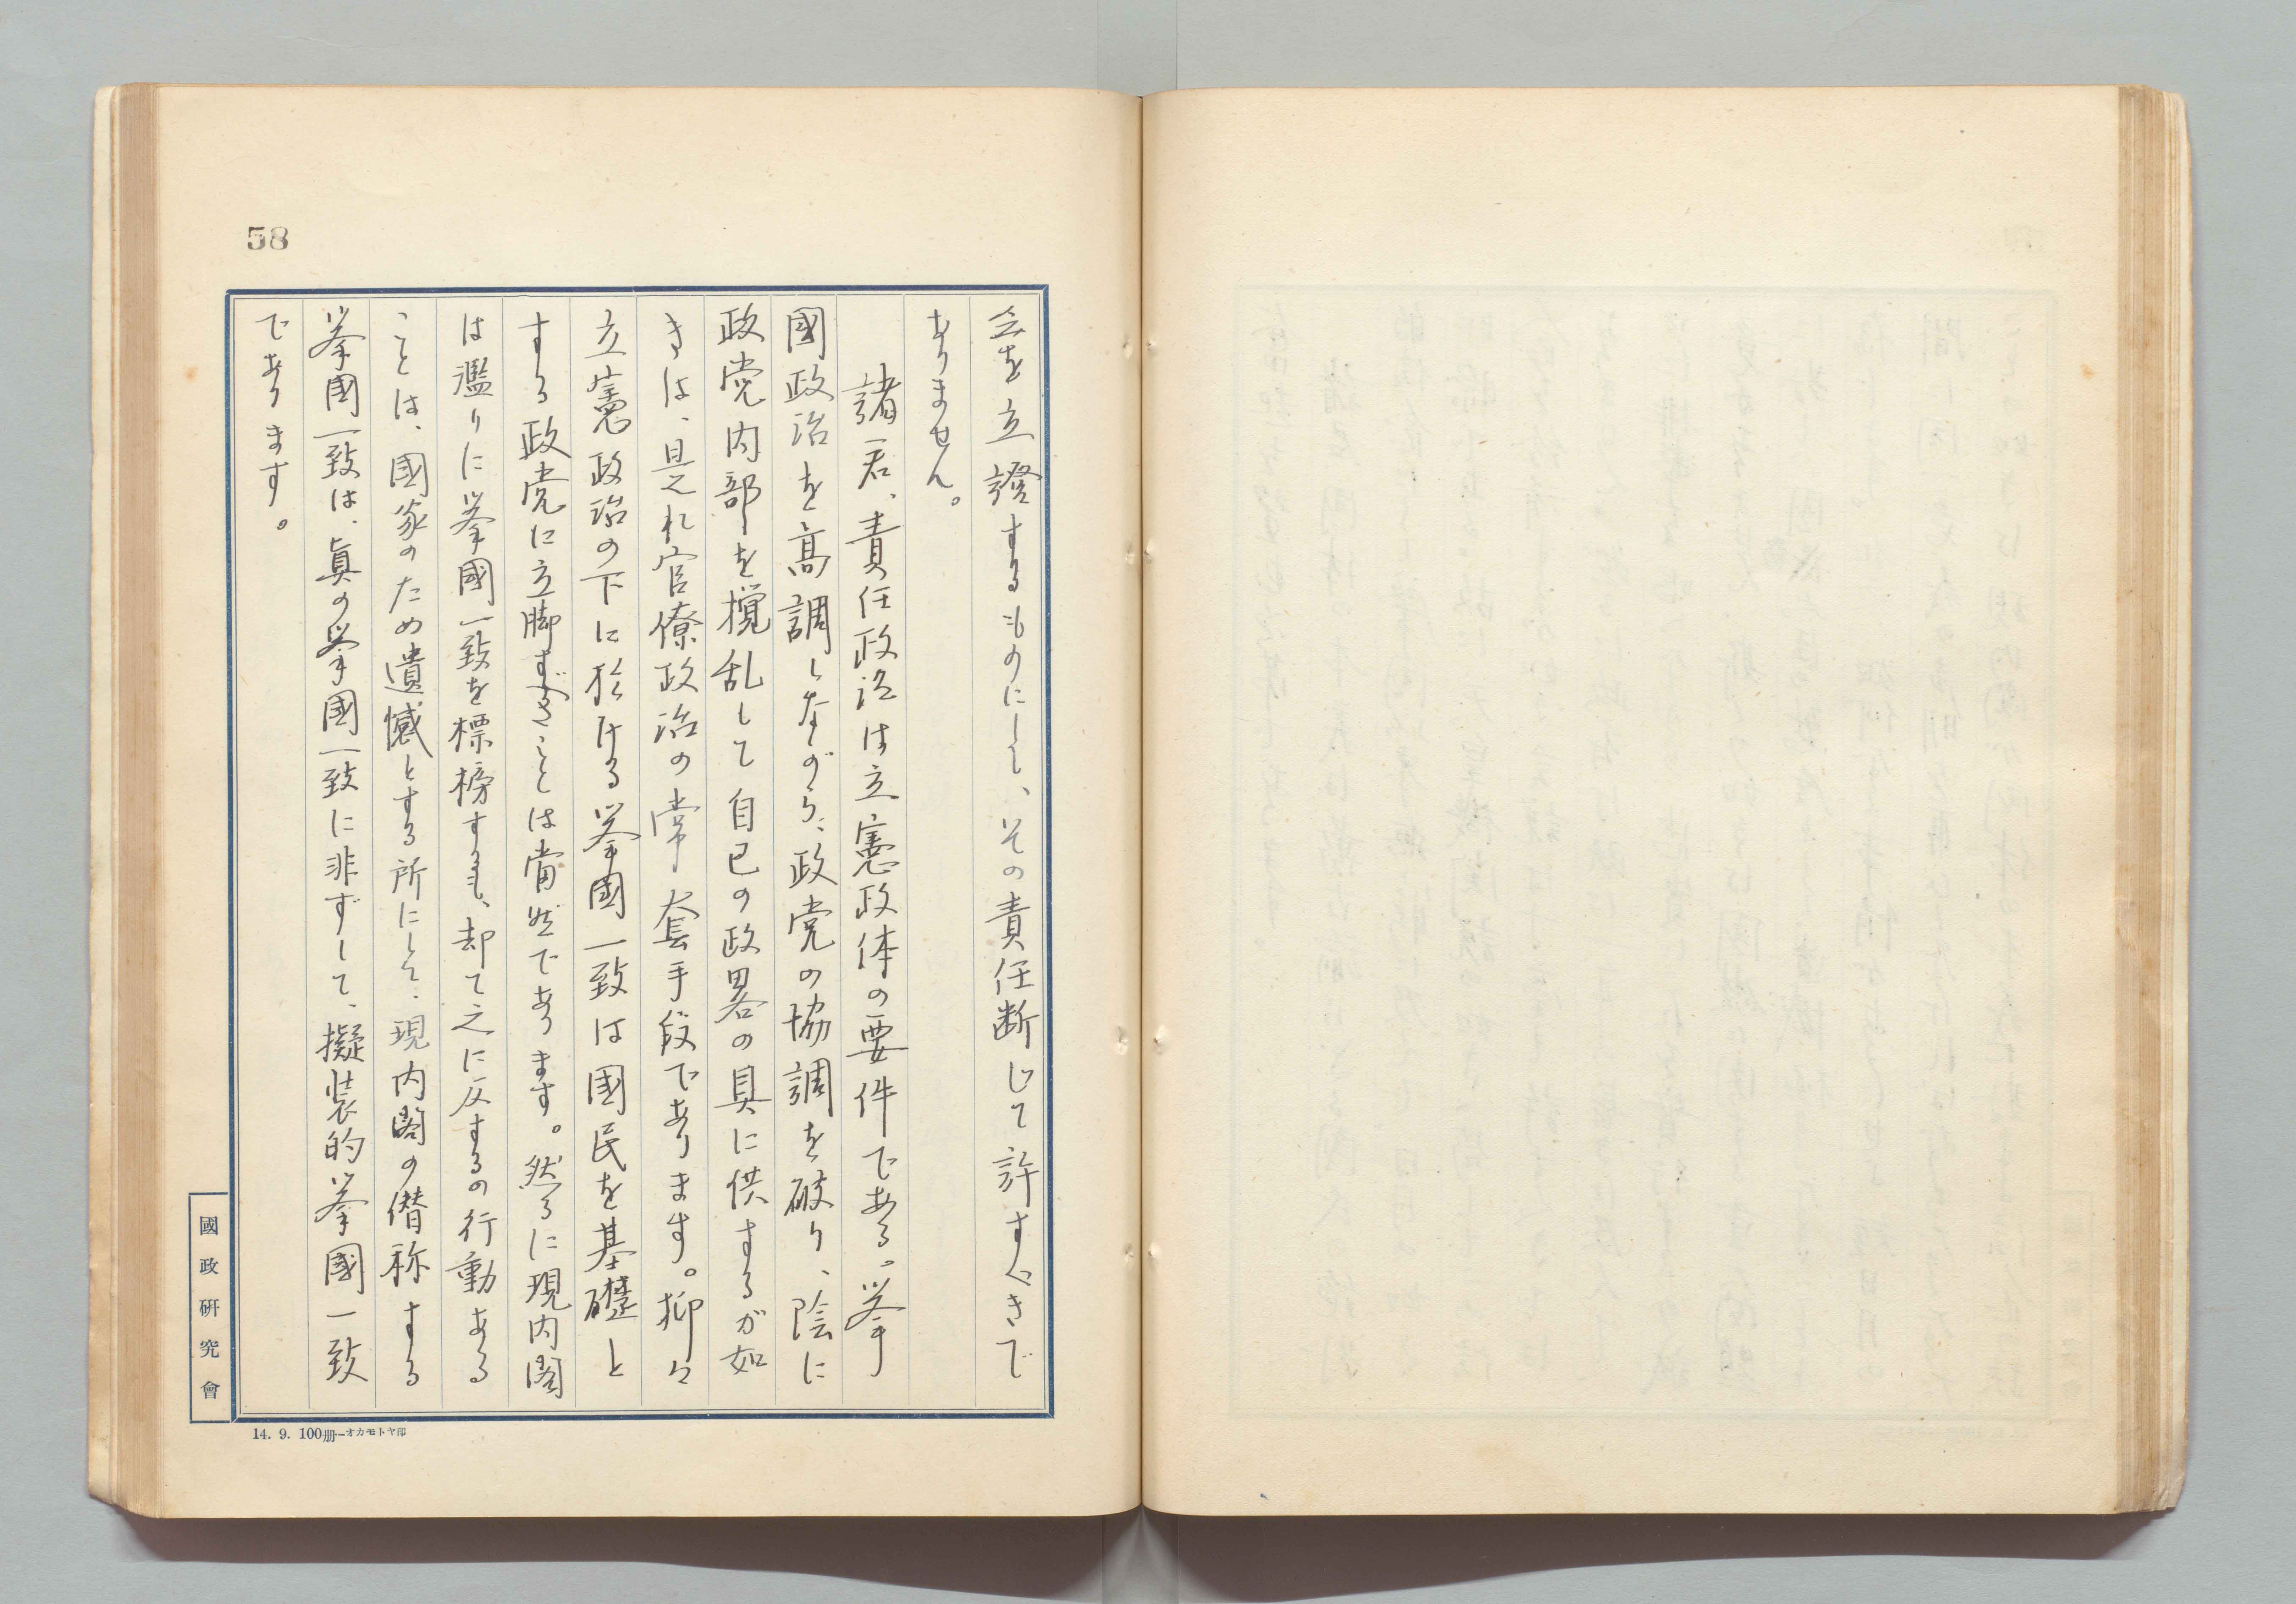 58
会を立證するものにして、その責任断じて許すべきで
ありません。
諸君、責任政治は立憲政体の要件である。挙
國政治を高調しながら、政党の協調を破り、陰に
政党内部を攪乱して自己の政畧の具に供するが如
きは、是れ官僚政治の常套手段であります。抑々
立憲政治の下に於ける挙國一致は國民を基礎と
する政党に立脚すべきことは當然であります。然るに現内閣
は濫りに挙國一致を標榜するも、却て之に反するの行動ある
ことは、國家のため遺憾とする所にして、現内閣の僭称する
挙國一致は、眞の挙國一致に非ずして、擬装的挙國一致
であります。
國政研究會
14. 9. 100冊—オカモトヤ印